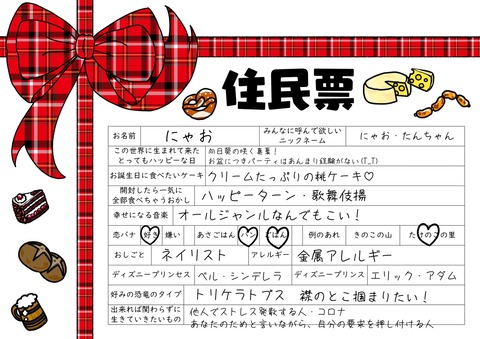 住民票
お名前 にゃお みんなに呼んで欲しいニックネーム にゃお・たんちゃん
この世界に生まれて来たとってもハッピーな日 向日葵の咲く真夏!
お盆につきパーティはあんまり経験がない(T_T)
お誕生日に食べたいケーキ クリームたっぷりの桃ケーキ♡
開封したら一気に全部食べちゃうおかし ハッピーターン・歌舞伎揚
幸せになる音楽 オールジャンルなんでもこい!
恋バナ 好き 嫌い あさごはん パン ごはん 例のあれ きのこの山 たけのこの里
おしごと ネイリスト アレルギー 金属アレルギー
ディズニープリンセス ベル・シンデレラ ディズニープリンス エリック・アダム
好みの恐竜のタイプ トリケラトプス 襟のとこ掴まりたい!
出来れば関わらずに生きていきたいもの 他人でストレス発散する人・コロナ
あなたのためと言いながら、自分の要求を押し付ける人